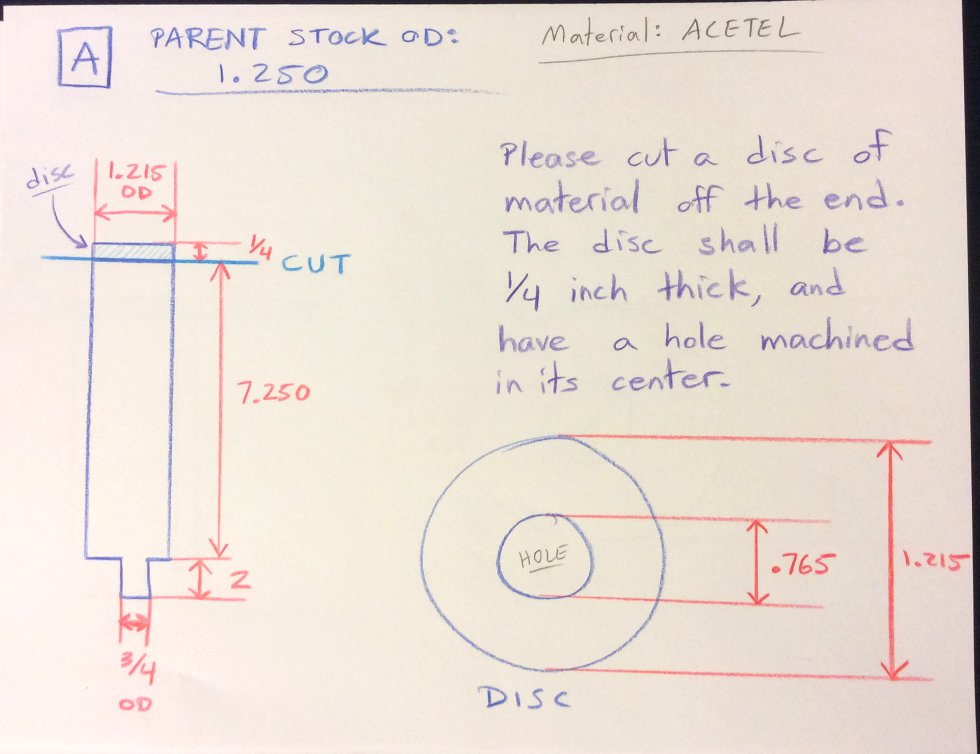 A
PARENT STOCK OD:
1.250
Material: ACETEL
disc
1.215
OD
1/4
CUT
7.250
2
3/4
OD
Please cut a disc of
material off the end.
The disc shall be
1/4 inch thick, and
have a hole machined
in its center.
HOLE
.765
1.215
DISC